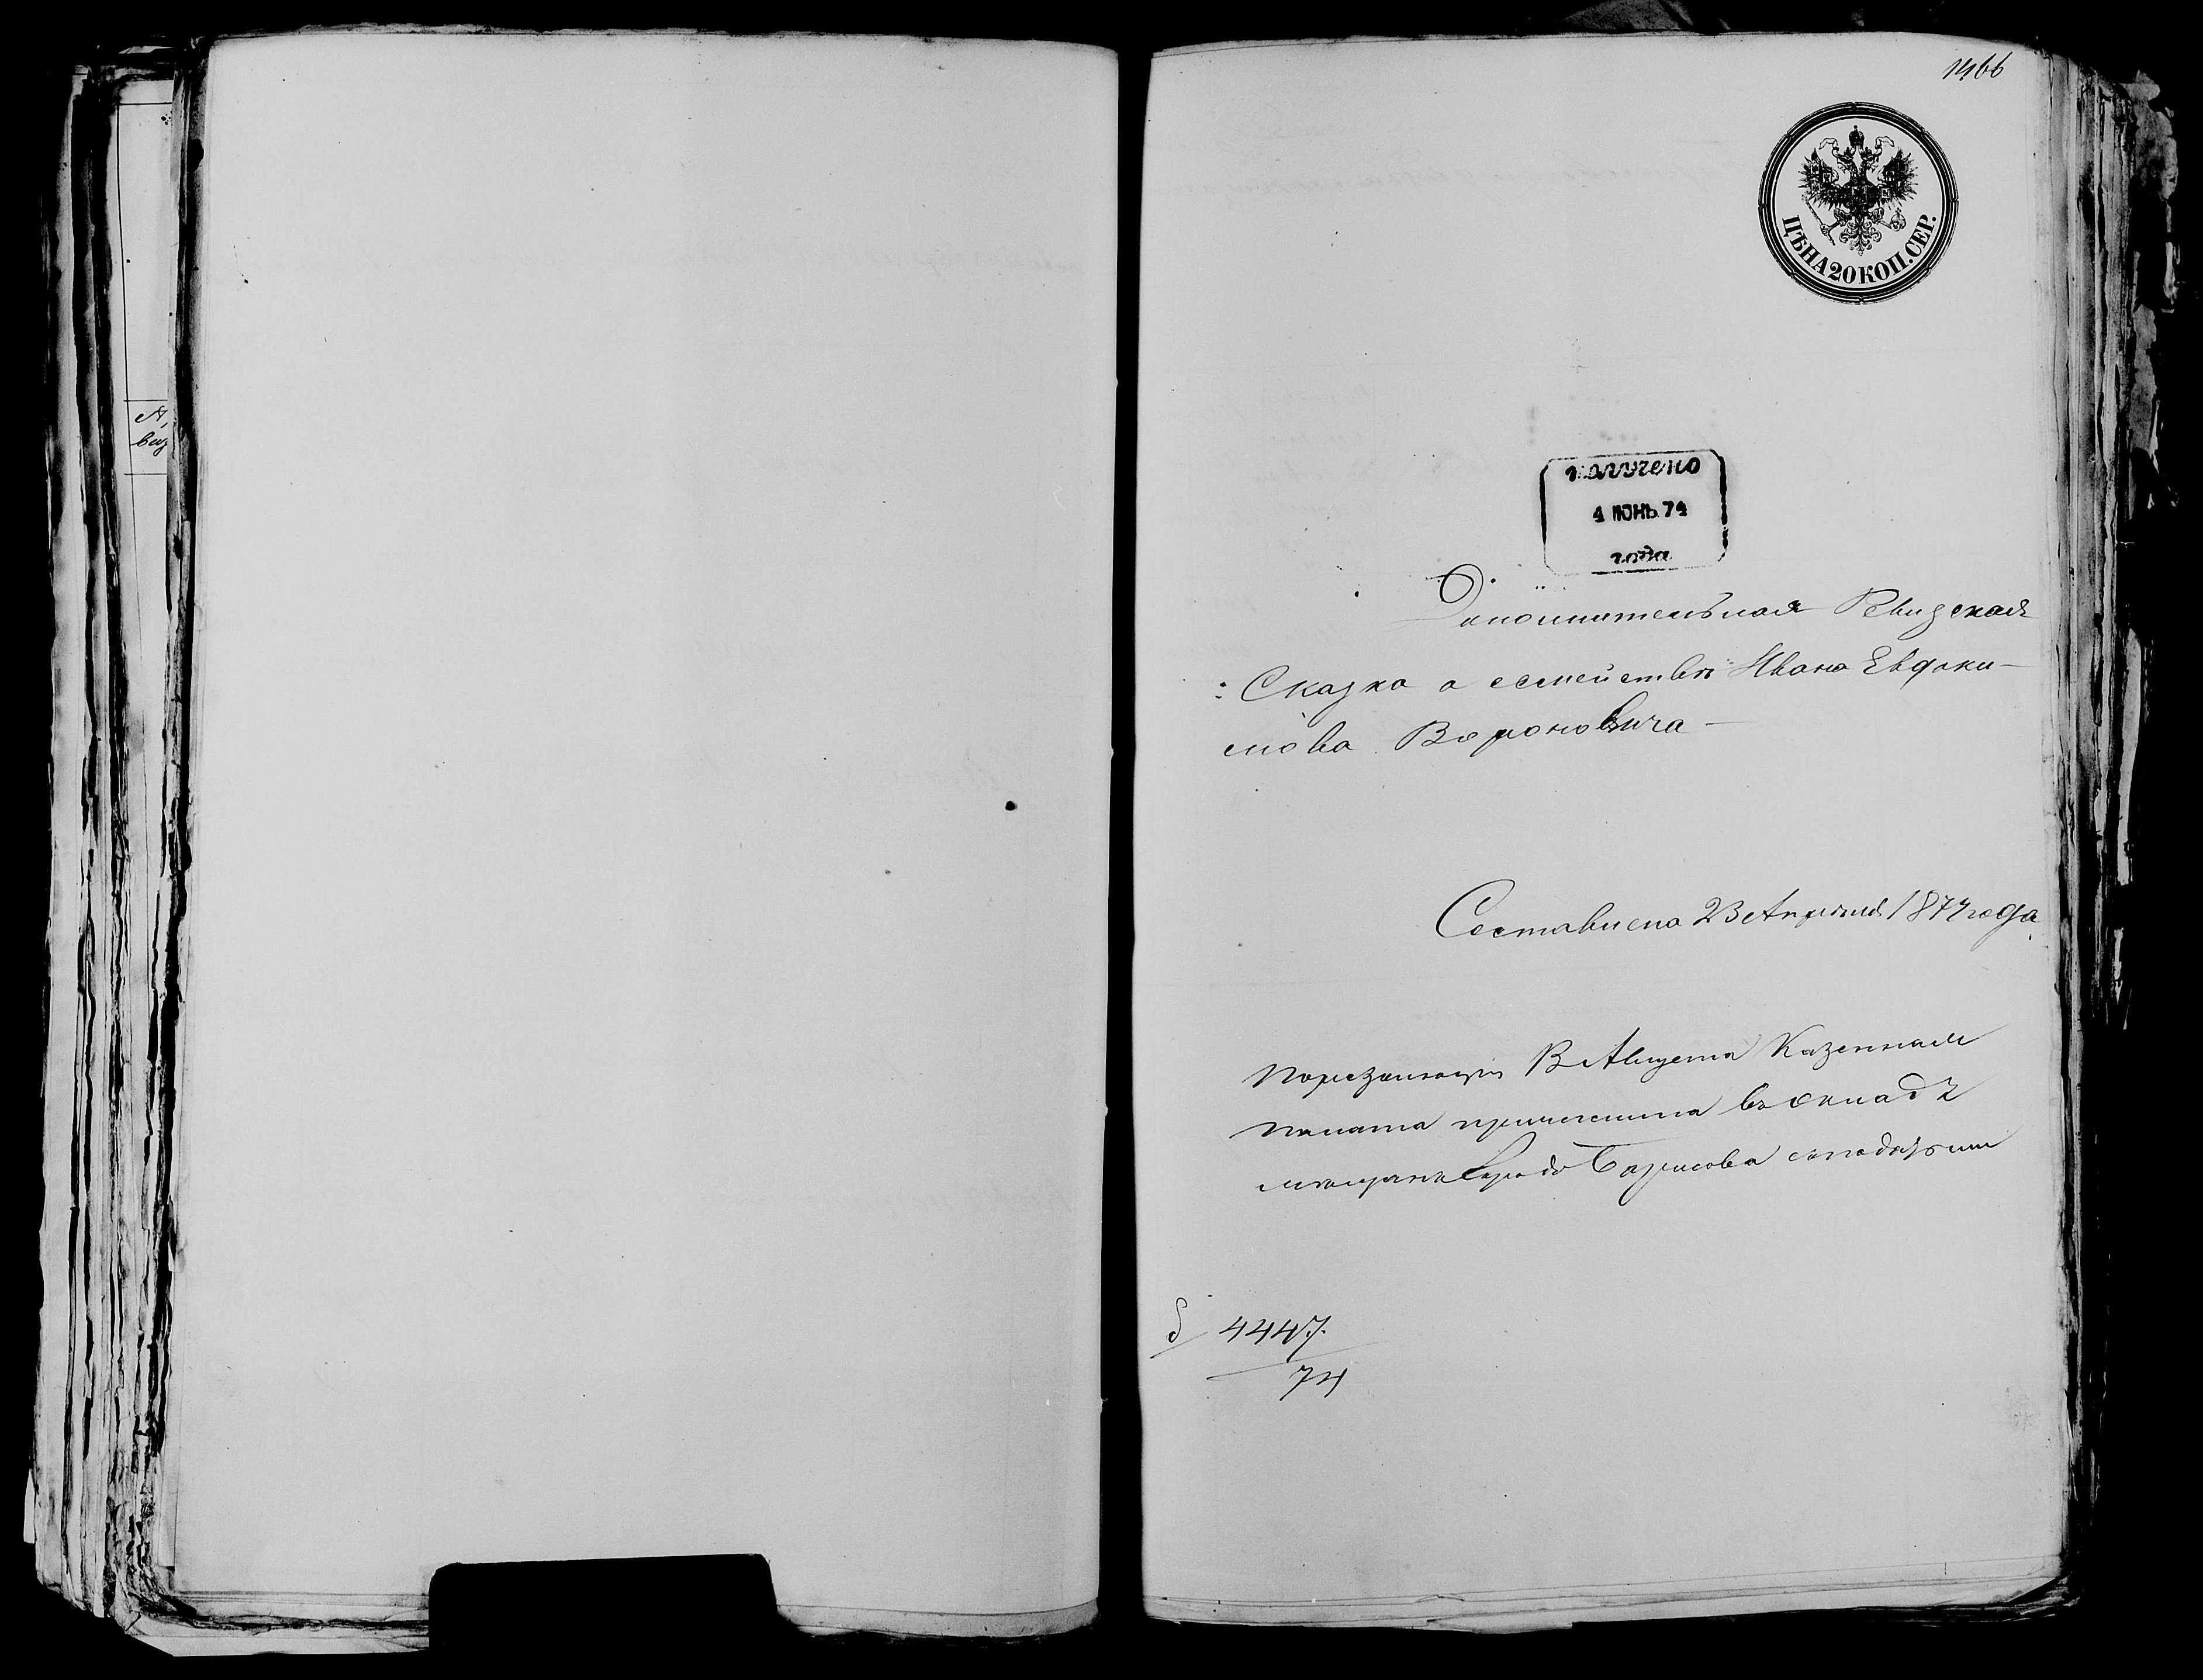 1466
ЦѢНА 20 КОП. СЕР.
получено
4 ІЮНЬ 74
года
Дополнительная Ревизская
Сказка о семействѣ Ивана Евдоки-
мова Вороновича
Составлена 23 Апрѣля 1874 года
По резолюціи 13 Августа Казенная
палата причислила въ окладъ
мѣщанъ города Борисова съ податьми
4447.
74
А,